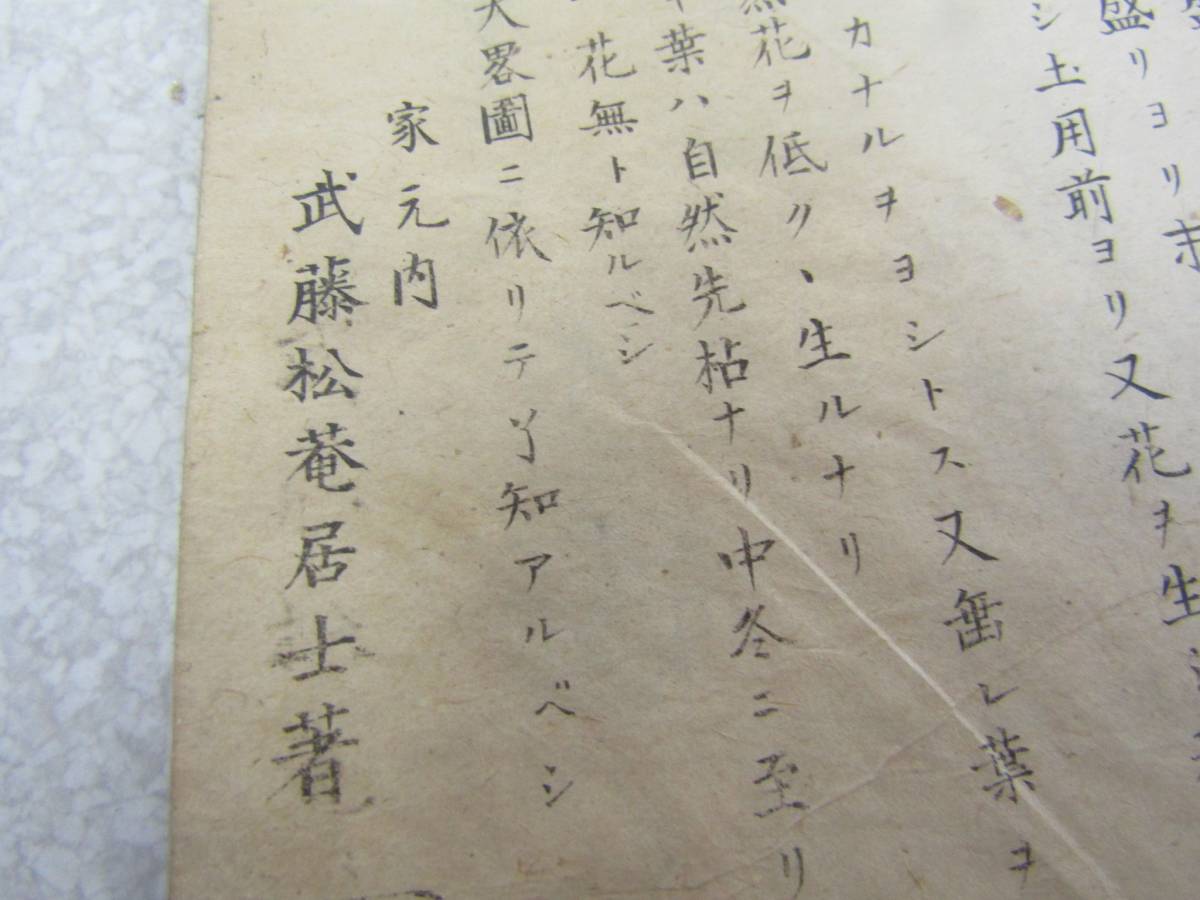 盛リヨリ
シ土用前ヨリ又花ヲ生
カナルヲヨシトス又垂レ葉ヲ
花ヲ低ク、生ルナリ
葉ハ自然先枯ナリ中冬ニ至リ
花無ト知ルベシ
大畧圖ニ依リテ丫知アルベシ
家元内
武藤松菴居士著